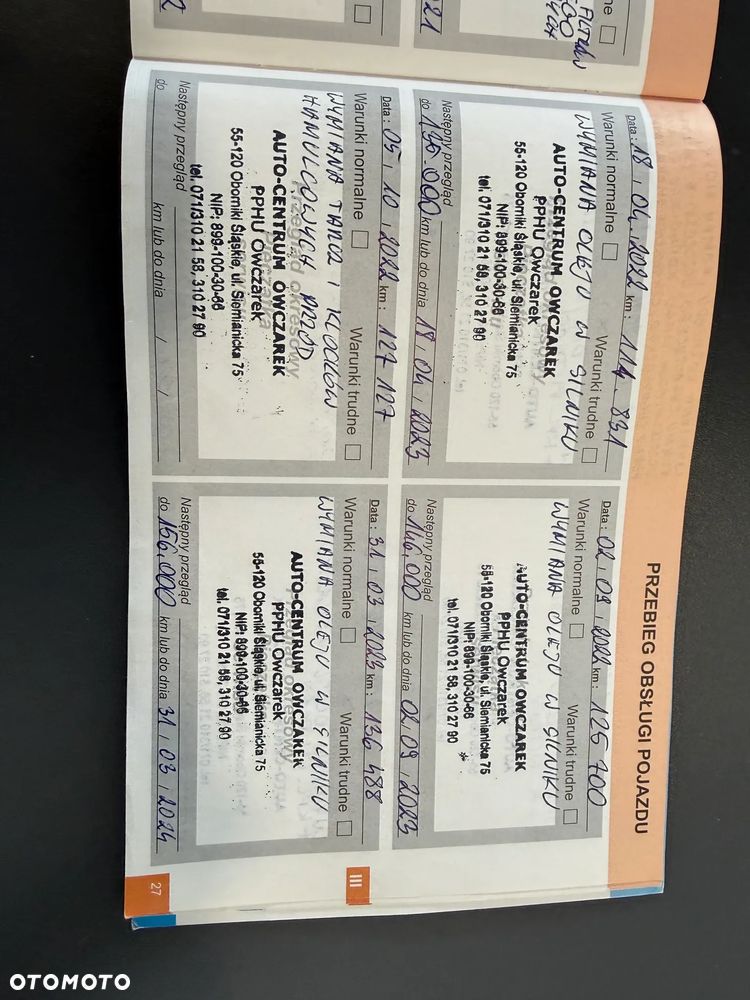 PRZEBIEG OBSŁUGI POJAZDU
Data: 18.04.2022 km: 114.831
Warunki normalne Warunki trudne
WYMIANA OLEJU W SILNIKU
AUTO-CENTRUM OWCZAREK
PPHU Owczarek
55-120 Oborniki Śląskie, ul. Siemianicka 75
NIP: 899-100-30-66
tel. 071/310 21 58, 310 27 90
Następny przegląd
do 130.000 km lub do dnia 18.04.2023
Data: 02.09.2022 km: 125700
Warunki normalne Warunki trudne
WYMIANA OLEJU W SILNIKU
AUTO-CENTRUM OWCZAREK
PPHU Owczarek
55-120 Oborniki Śląskie, ul. Siemianicka 75
NIP: 899-100-30-66
tel. 071/310 21 58, 310 27 90
Następny przegląd
do 146.000 km lub do dnia 02.09.2023
Data: 05.10.2022 km: 127127
Warunki normalne Warunki trudne
WYMIANA TARCZ I KLOCKÓW
HAMULCOWYCH PRZÓD
AUTO-CENTRUM OWCZAREK
PPHU Owczarek
55-120 Oborniki Śląskie, ul. Siemianicka 75
NIP: 899-100-30-66
tel. 071/310 21 58, 310 27 90
Następny przegląd
do km lub do dnia / /
Data: 31.03.2023 km: 136488
Warunki normalne Warunki trudne
WYMIANA OLEJU W SILNIKU
AUTO-CENTRUM OWCZAREK
PPHU Owczarek
55-120 Oborniki Śląskie, ul. Siemianicka 75
NIP: 899-100-30-66
tel. 071/310 21 58, 310 27 90
Następny przegląd
do 156.000 km lub do dnia 31.03.2024
III
27
OTOMOTO